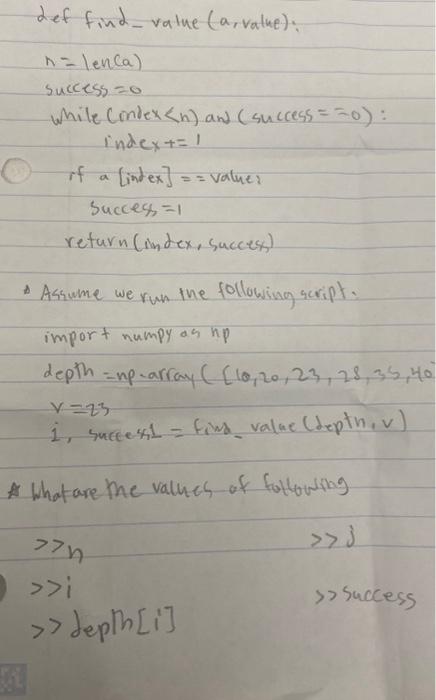 def find_value (a, value):
n = len(a)
success = 0
while (index < n) and (success == 0) :
index += 1
if a [index] == value:
success = 1
return (index, success)
Assume we run the following script.
import numpy as np
depth = np.array ( [10, 20, 23, 28, 35, 40
v = 23
i, success1 = find_value (depth, v)
What are the values of following
>> n >> j
>> i >> success
>> depth [i]